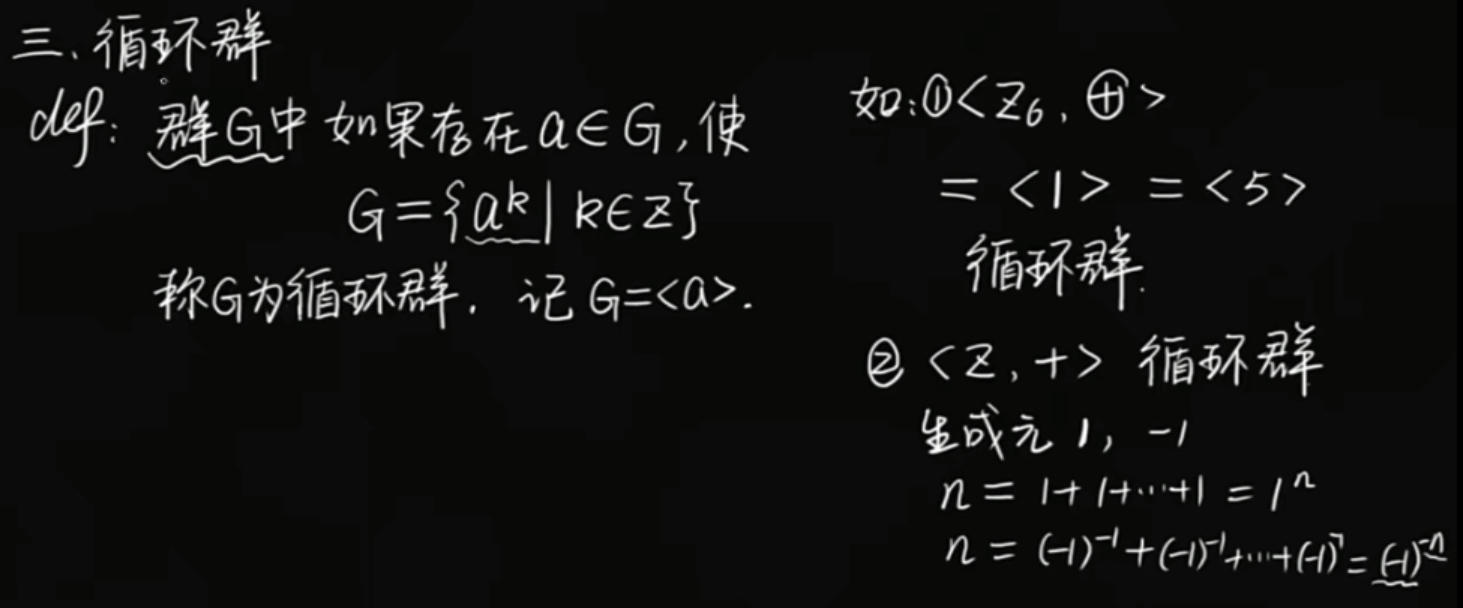 三、循环群
def: 群G中如果存在a∈G,使
G={aᵏ|k∈Z}
称G为循环群. 记G=<a>.
如:①<Z₆,⊕>
=<1>=<5>
循环群.
②<Z,+>循环群
生成元1,-1
n=1+1+…+1=1ⁿ
n=(-1)⁻¹+(-1)⁻¹+…+(-1)⁻¹=(-1)⁻ⁿ